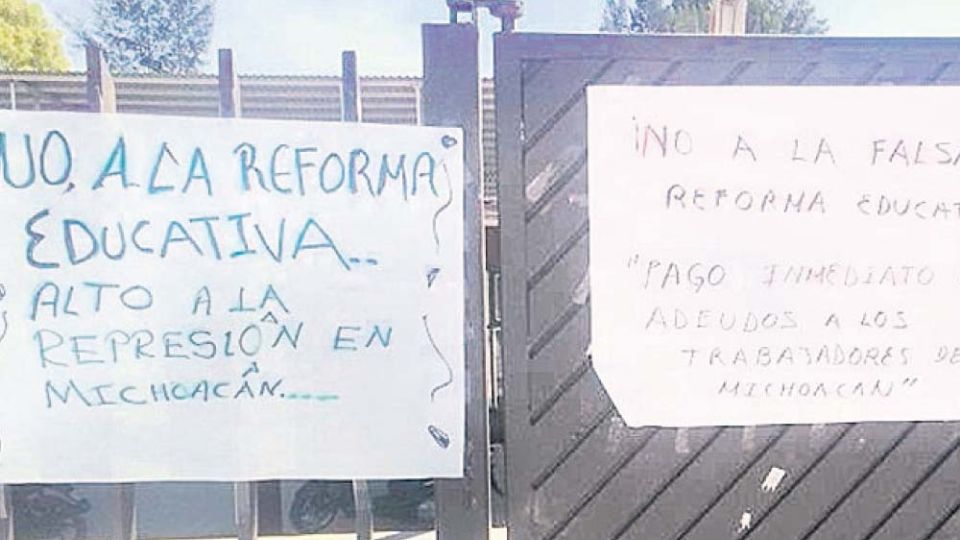 NO, A LA REFORMA
EDUCATIVA...
ALTO A LA
REPRESIÓN EN
MICHOACÁN.....
¡NO A LA FALSA
REFORMA EDUCATI
"PAGO INMEDIATO
ADEUDOS A LOS
TRABAJADORES DE
MICHOACAN"